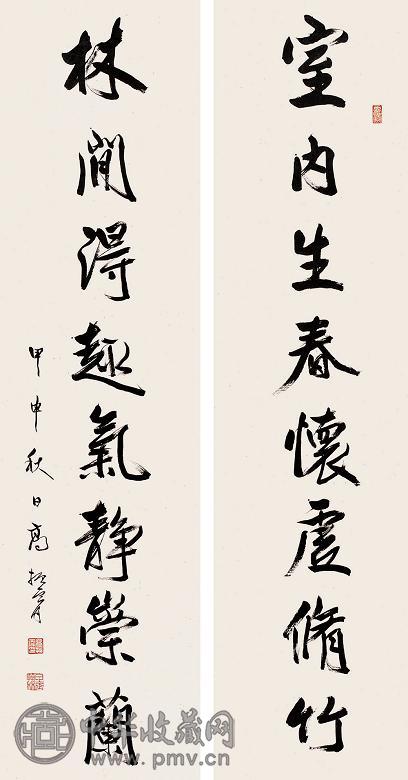 室内生春懷虛脩竹
林間得趣氣靜崇蘭
甲申秋日高振霄
中华收藏网
www.pmv.cn